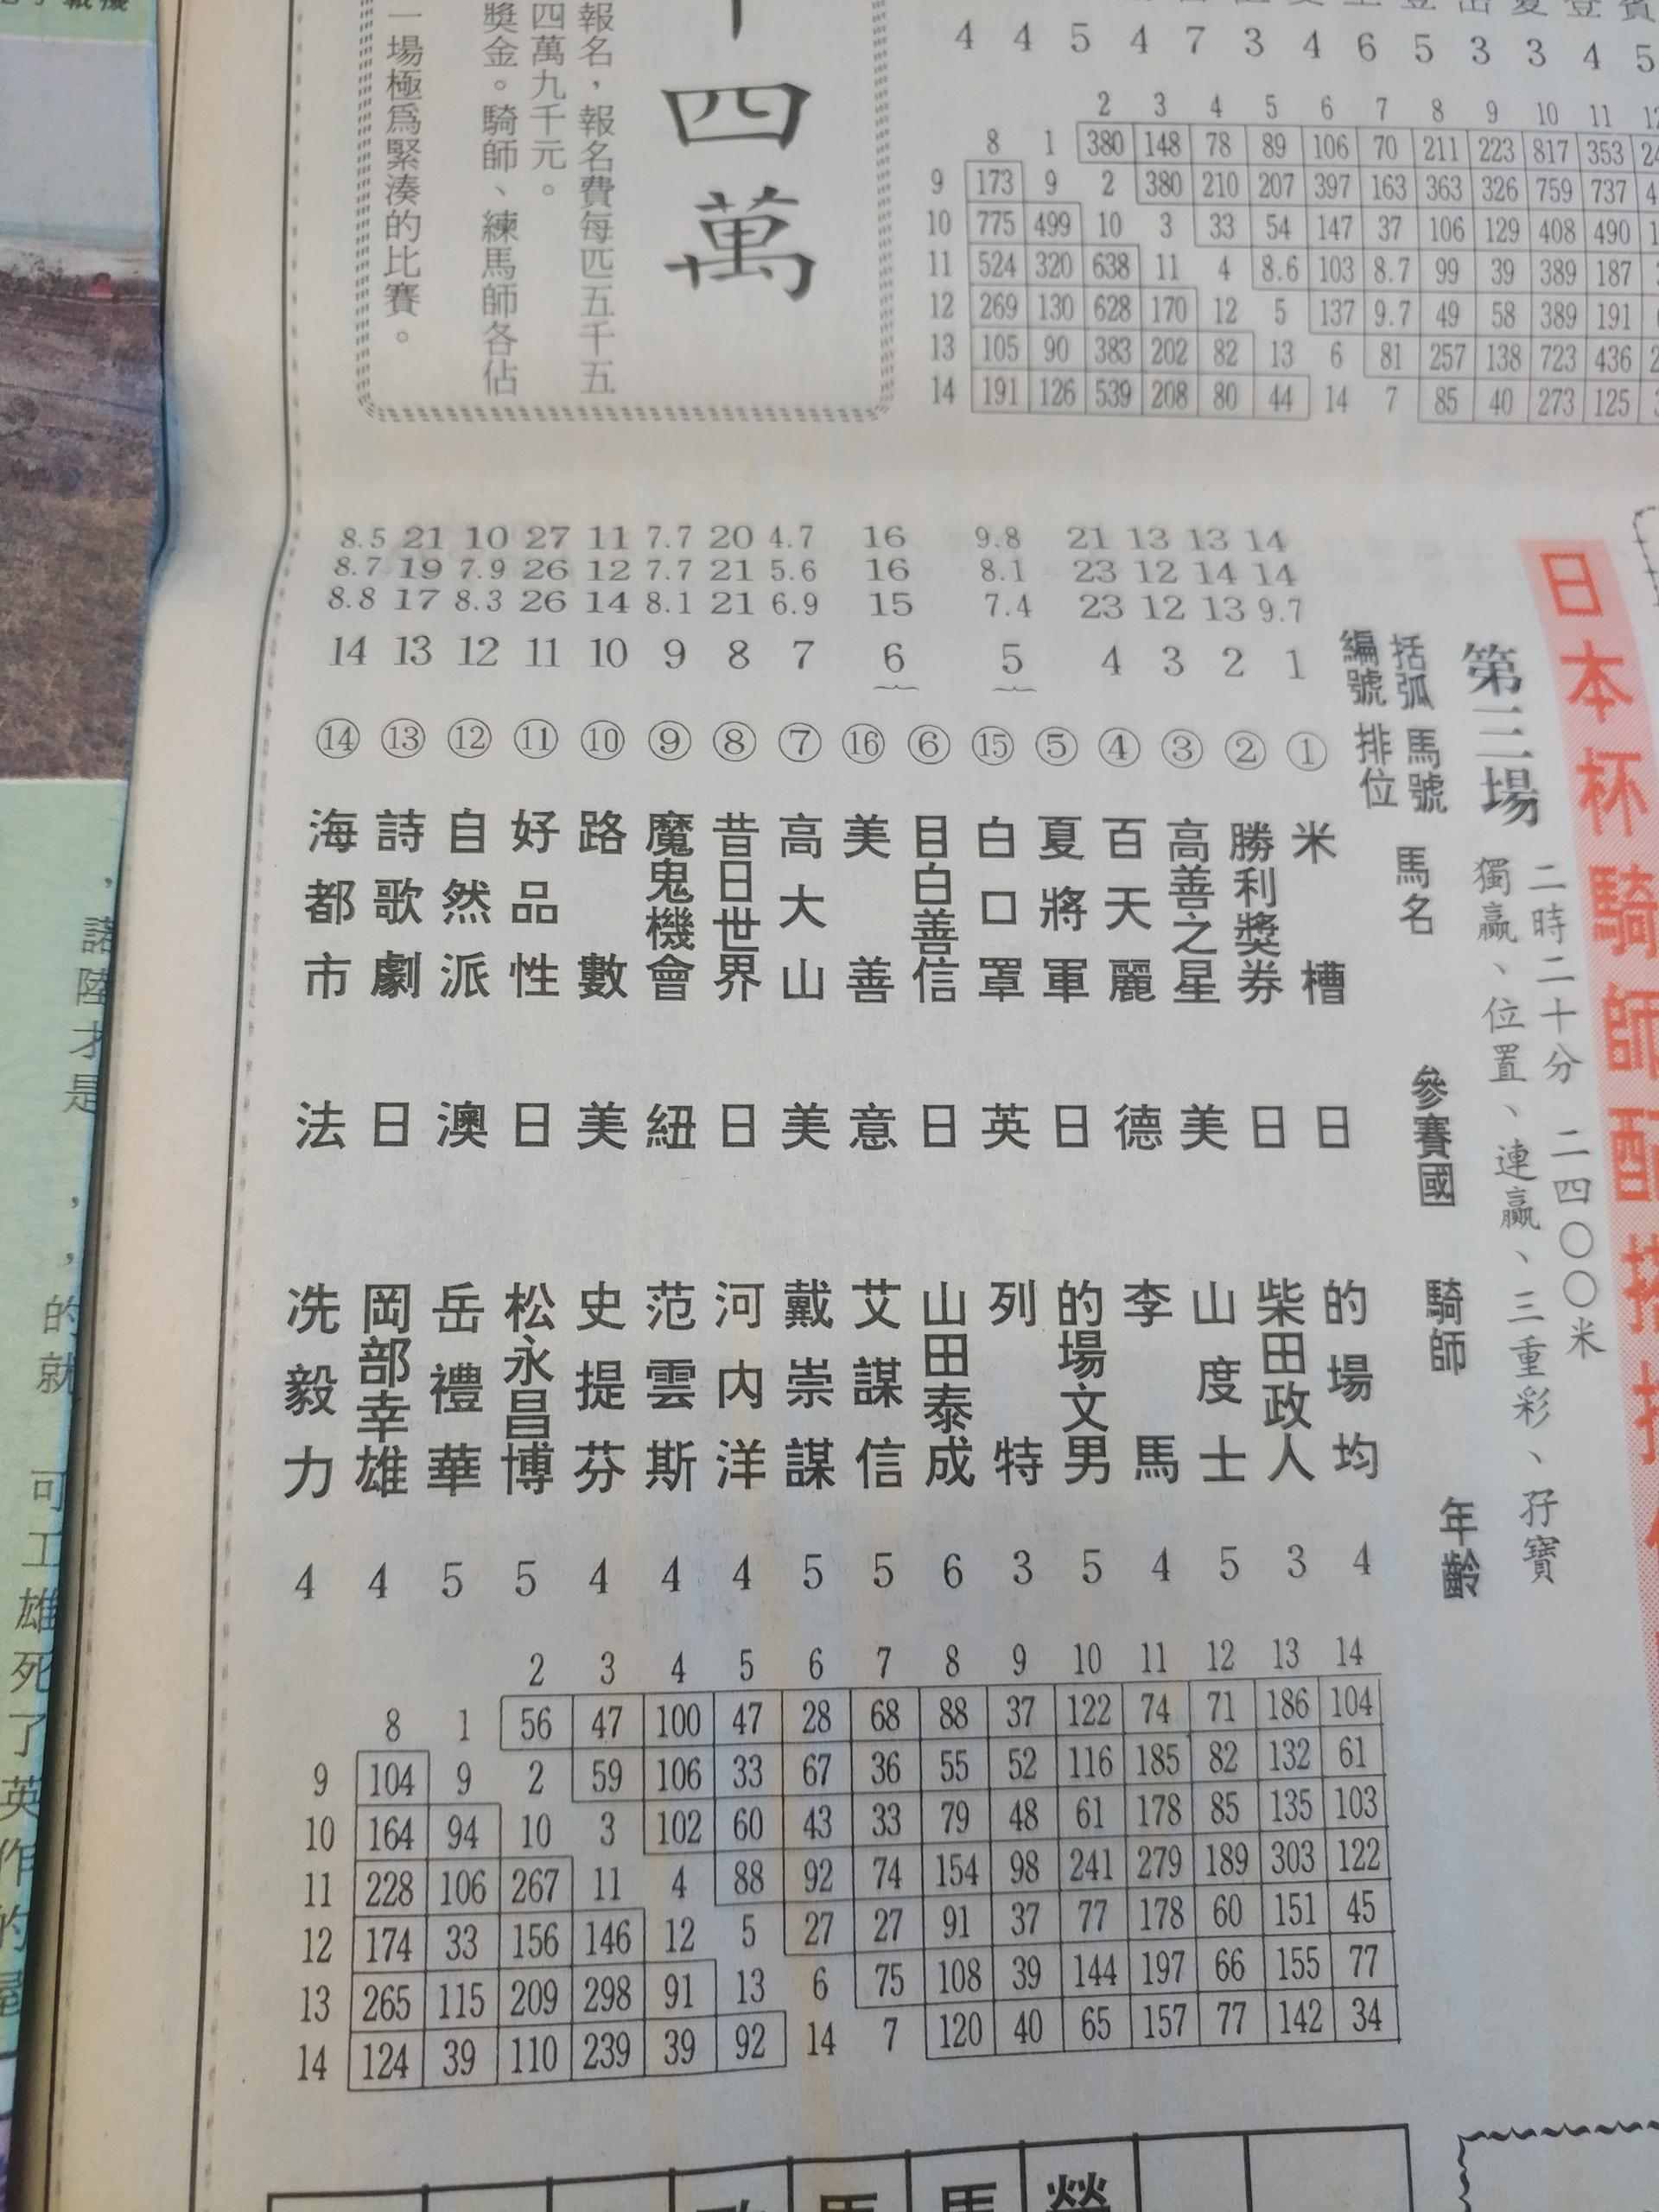 四萬
報名，報名費每匹五千五
四萬九千元。
獎金。騎師、練馬師各佔
一場極為緊湊的比賽。
4 4 5 4 7 3 4 6 5 3 3 4 5
2 3 4 5 6 7 8 9 10 11
8 1 380 148 78 89 106 70 211 223 817 353
9 173 9 2 380 210 207 397 163 363 326 759 737
10 775 499 10 3 33 54 147 37 106 129 408 490
11 524 320 638 11 4 8.6 103 8.7 99 39 389 187
12 269 130 628 170 12 5 137 9.7 49 58 389 191
13 105 90 383 202 82 13 6 81 257 138 723 436
14 191 126 539 208 80 44 14 7 85 40 273 125
日本杯騎師配搭
第三場
二時二十分 二四〇〇米
獨贏、位置、連贏、三重彩、孖寶
括弧 馬號 馬名 參賽國 騎師 年齡
編號 排位
14 14 9.7 1 ① 米槽 日 的場均 4
13 14 13 2 ② 勝利獎券 日 柴田政人 3
13 12 12 3 ③ 高善之星 美 山度士 5
21 23 23 4 ④ 百天麗 德 李馬 4
⑤ 夏將軍 日 的場文男 5
9.8 8.1 7.4 5 ⑮ 白口罩 英 列特 3
⑥ 目白善信 日 山田泰成 6
16 16 15 6 ⑯ 美善 意 艾謀信 5
4.7 5.6 6.9 7 ⑦ 高大山 美 戴崇謀 5
20 21 21 8 ⑧ 昔日世界 日 河內洋 4
7.7 7.7 8.1 9 ⑨ 魔鬼機會 紐 范雲斯 4
11 12 14 10 ⑩ 路數 美 史提芬 4
27 26 26 11 ⑪ 好品性 日 松永昌博 5
10 7.9 8.3 12 ⑫ 自然派 澳 岳禮華 5
21 19 17 13 ⑬ 詩歌劇 日 岡部幸雄 4
8.5 8.7 8.8 14 ⑭ 海都市 法 冼毅力 4
2 3 4 5 6 7 8 9 10 11 12 13 14
8 1 56 47 100 47 28 68 88 37 122 74 71 186 104
9 104 9 2 59 106 33 67 36 55 52 116 185 82 132 61
10 164 94 10 3 102 60 43 33 79 48 61 178 85 135 103
11 228 106 267 11 4 88 92 74 154 98 241 279 189 303 122
12 174 33 156 146 12 5 27 27 91 37 77 178 60 151 45
13 265 115 209 298 91 13 6 75 108 39 144 197 66 155 77
14 124 39 110 239 39 92 14 7 120 40 65 157 77 142 34